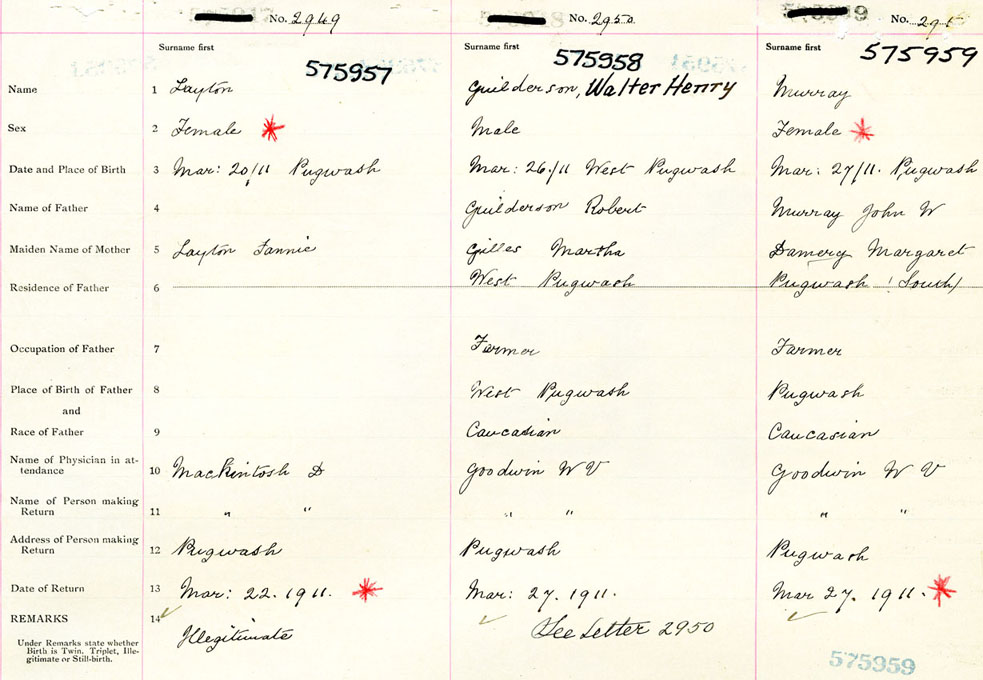 No. 2949 No. 2950 No. 295
Surname first Surname first Surname first
575957 575958 575959
Name 1 Layton Guilderson, Walter Henry Murray
Sex 2 Female Male Female
Date and Place of Birth 3 Mar: 20/11 Pugwash Mar: 26./11 West Pugwash Mar: 27/11. Pugwash
Name of Father 4 Guilderson Robert Murray John W
Maiden Name of Mother 5 Layton Fannie Gilles Martha Damery Margaret
Residence of Father 6 West Pugwash Pugwash (South)
Occupation of Father 7 Farmer Farmer
Place of Birth of Father 8 West Pugwash Pugwash
and
Race of Father 9 Caucasian Caucasian
Name of Physician in at-
tendance 10 Mackintosh D Goodwin W V Goodwin W V
Name of Person making
Return 11 " " " " " "
Address of Person making
Return 12 Pugwash Pugwash Pugwash
Date of Return 13 Mar: 22. 1911. Mar: 27. 1911. Mar 27. 1911.
REMARKS 14 Illegitimate See Letter 2950
Under Remarks state whether
Birth is Twin. Triplet, Ille-
gitimate or Still-birth.
575959